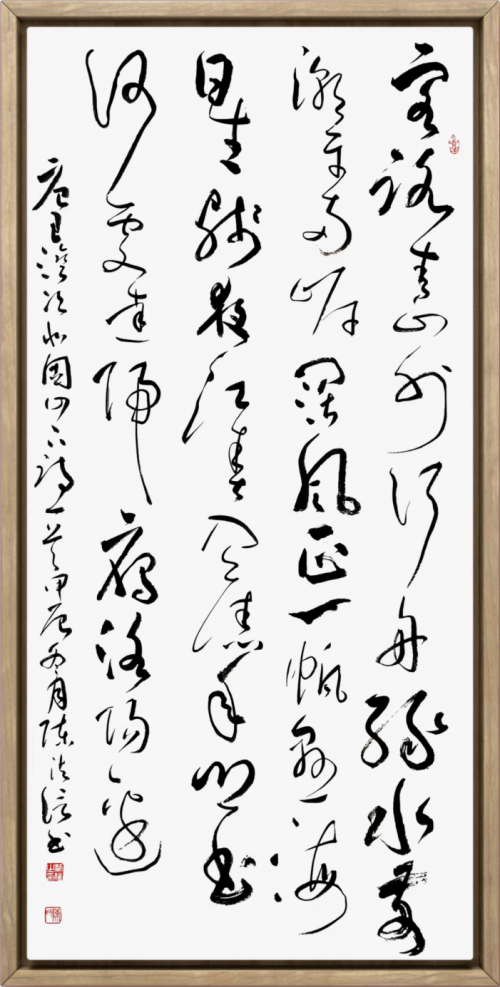 客路青山外行舟綠水前
潮平兩岸闊風正一帆懸海
日生殘夜江春入舊年鄉書
何處達歸雁洛陽邊
唐王灣次北固山下詩一首甲辰冬月陳書